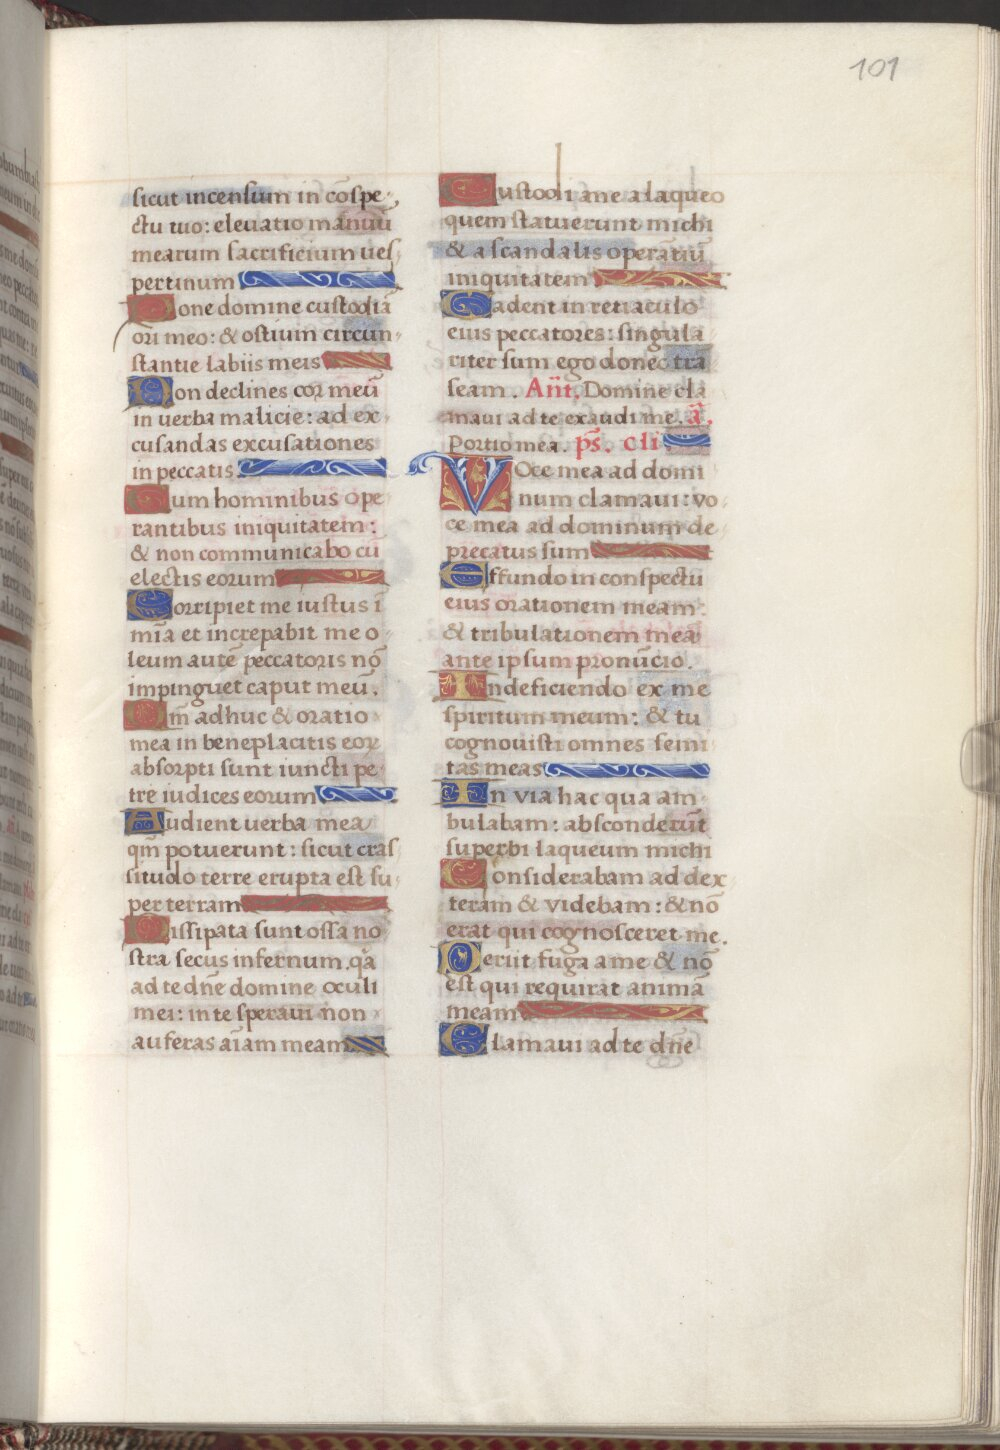 101
sicut incensum in cōspe-
ctu tuo: eleuatio manuū
mearum sacrificium ues-
pertinum
Pone domine custodiā
ori meo: & ostium circun-
stantie labiis meis
Non declines cor meū
in verba malicie: ad ex-
cusandas excusationes
in peccatis.
Cum hominibus ope-
rantibus iniquitatem:
& non communicabo cū
electis eorum
Corripiet me iustus ī
mīa et increpabit me o-
leum autē peccatoris nō
impinguet caput meū.
Qm̄ adhuc & oratio
mea in beneplacitis eoꝝ
absorpti sunt iuncti pe-
tre iudices eorum
Audient uerba mea
qm̄ potuerunt: sicut cras-
situdo terre erupta est su-
per terram
Dissipata sunt ossa no-
stra secus infernum. qā
ad te dn̄e domine oculi
mei: in te speraui non
auferas aīam meam
Custodi me a laqueo
quem statuerunt michi
& a scandalis operātiū
iniquitatem
Cadent in retiaculo
eius peccatores: singula-
riter sum ego donec tra-
seam. Añt. Domine cla-
maui ad te exaudi me. ā.
Portio mea. ps̄. cli.
VOce mea ad domi-
num clamaui: vo-
ce mea ad dominum de-
precatus sum
Effundo in conspectu
eius orationem meam:
& tribulationem meā
ante ipsum pronūcio.
In deficiendo ex me
spiritum meum: & tu
cognouisti omnes semi-
tas meas
In via hac qua am-
bulabam: absconderūt
superbi laqueum michi
Considerabam ad dex-
teram & videbam: & nō
erat qui cognosceret me.
Periit fuga a me & nō
est qui requirat animā
meam
Clamaui ad te dn̄e